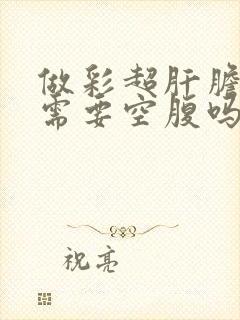 做彩超肝胆
需要空腹吗
祝亮